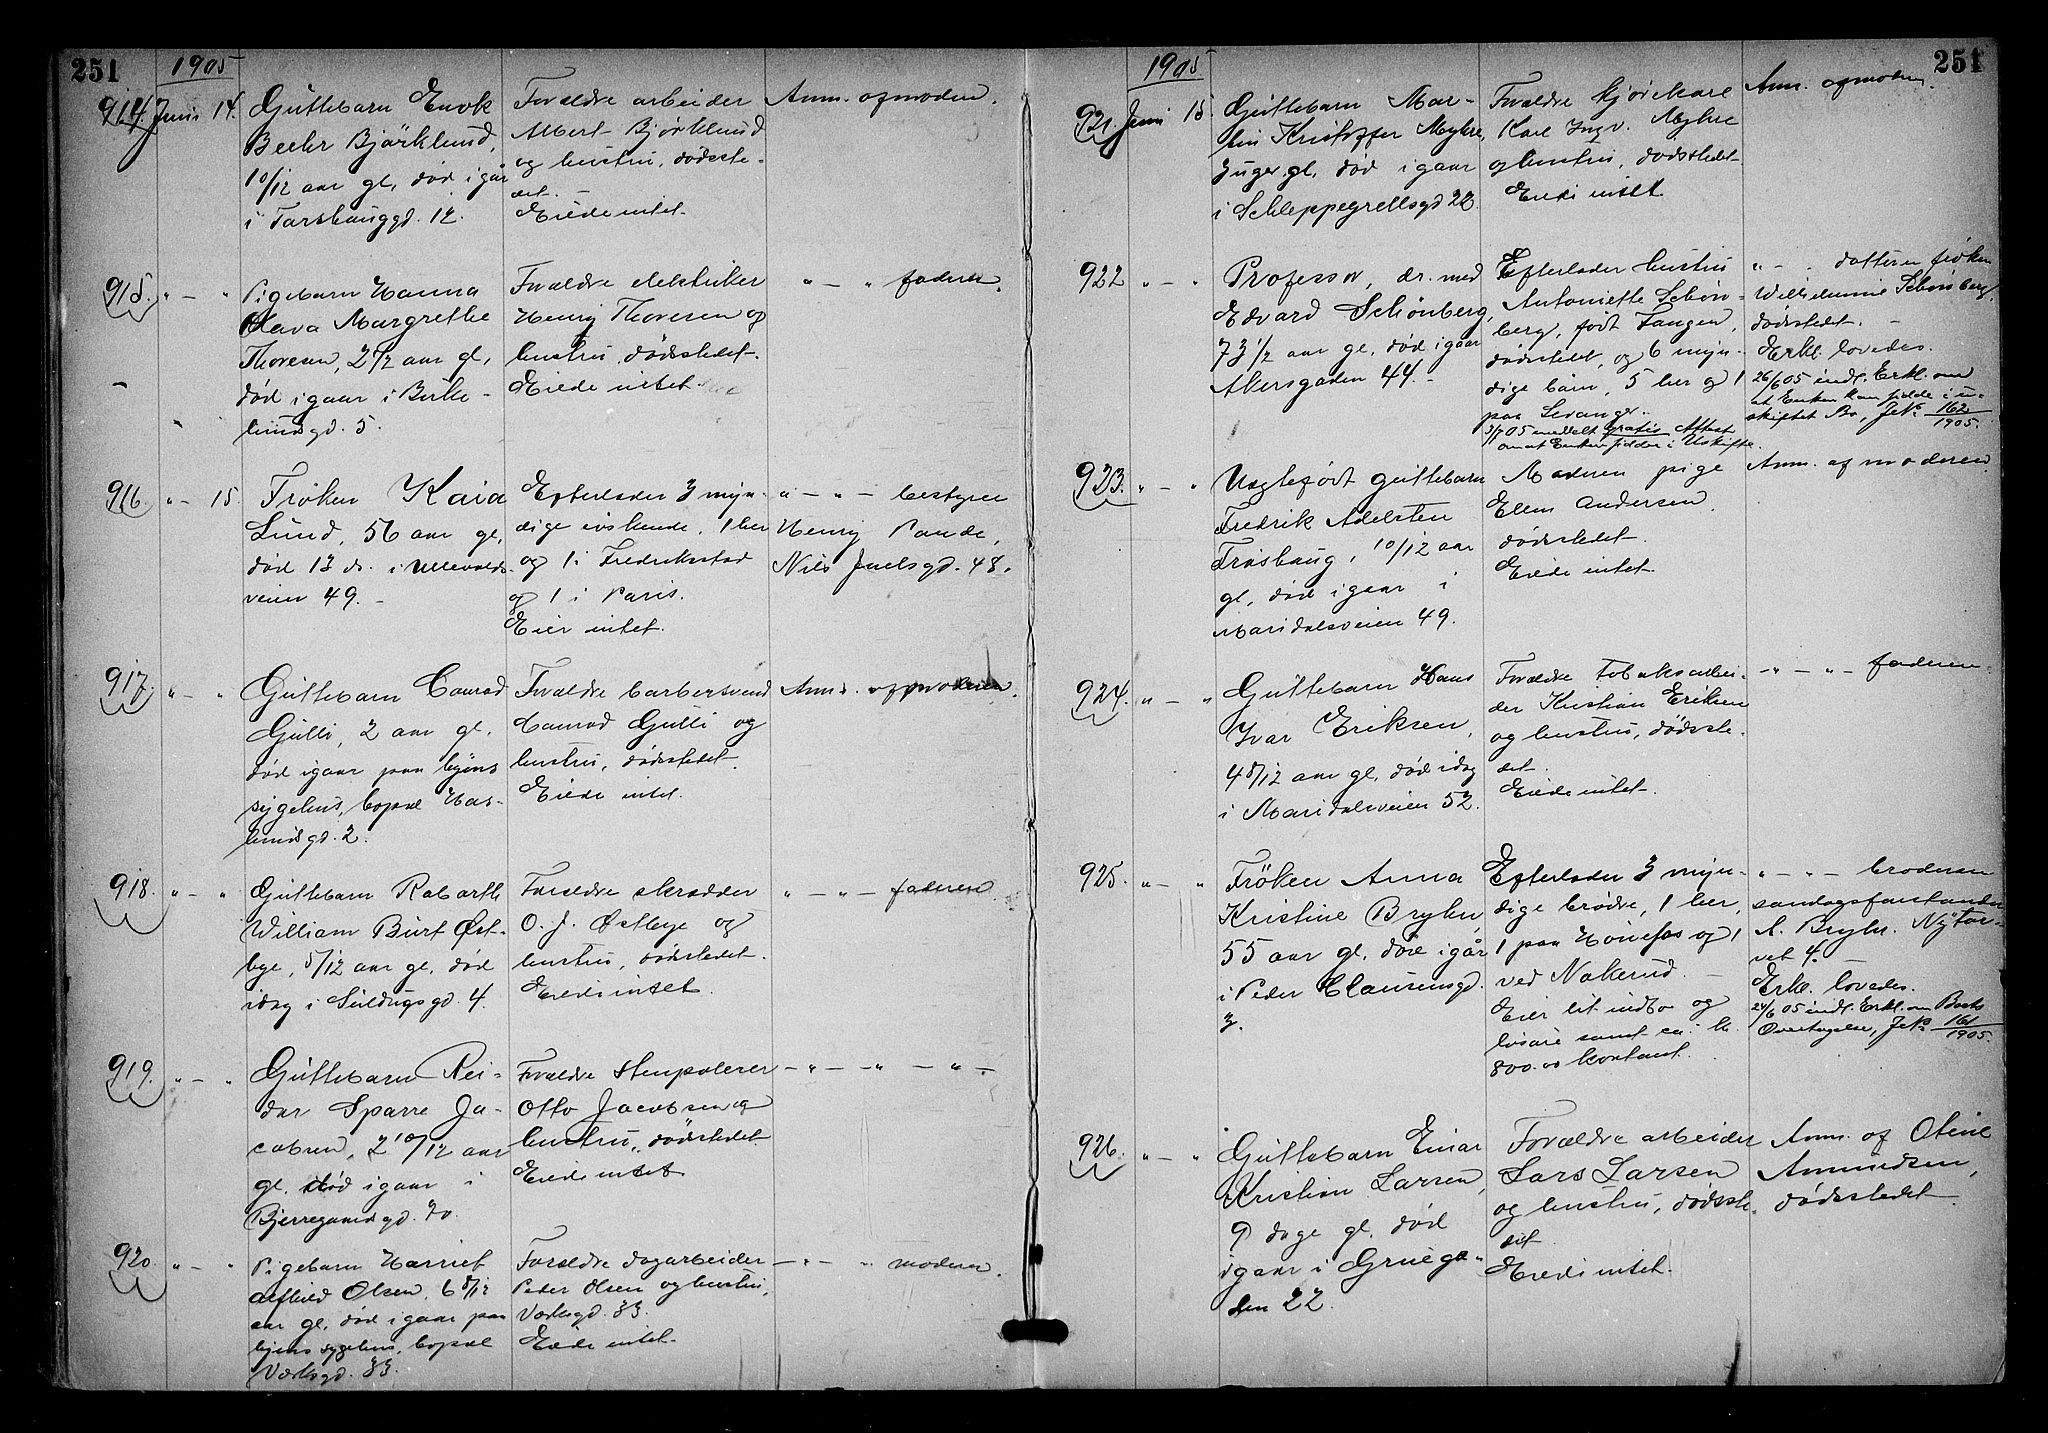 251
1905
914. Juni 14. Guttebarn Enok
Beehr Bjørklund,
10/12 aar gl., død igår
i Tarsbauggd. 12.
Forældre arbeider
Albert Bjørklund
og hustru, dødsste-
det.
Eiede intet.
Anm. af moderen.
915. " — " Pigebarn Hanna
Olava Margrethe
Thoresen, 2 1/2 aar gl.,
død igaar i Birke-
lundsgd. 5.
Forældre elektriker
Henry Thoresen og
hustru, dødsstedet.
Eiede intet.
" — " faderen.
916. " — 15. Frøken Kaia
Lund, 56 aar gl.,
død 13 ds. i Ullevolds-
veien 49. —
Efterlader 3 myn-
dige søskende, 1 her
og 1 i Fredriksstad
og 1 i Paris.
Eier intet.
" — " — bestyrer
Henry Paude,
Nils Juelsgd. 48.
917. " — " Guttebarn Conrad
Gulli, 2 aar gl.,
død igaar paa byens
sygehus, bopæl Has-
lundsgd. 2.
Forældre barbersvend
Conrad Gulli og
hustru, dødsstedet.
Eiede intet.
Anm. af moderen.
918. " — " Guttebarn Robarth
William Burt Øst-
bye, 5/12 aar gl., død
idag i Suldugsgd. 4.
Forældre skrædder
O. J. Østbye og
hustru, dødsstedet.
Eiede intet.
" — " — faderen
919. " — " Guttebarn Rei-
dar Sparre Ja-
cobsen, 2 10/12 aar
gl. død igaar i
Bjerregaardsgd. 70.
Forældre Stenpolerer
Otto Jacobsen og
hustru, dødsstedet
Eiede intet
— " — " — " —
920. " — " Pigebarn Harriet
Alfhild Olsen, 6 8/12
aar gl., død igaar paa
byens sygehus, bopæl
Værksgd. 33.
Forældre dagarbeider
Peder Olsen og hustru,
Værksgd. 33.
Eiede intet.
— " — " moderen.
251
1905
921. Juni 15. Guttebarn Mar-
tin Kristoffer Myhre,
3 uger gl., død igaar
i Schleppegrellsgd 22.
Forældre kjørekarl
Karl Ingv. Myhre
og hustru, dødsstedet
Eiede intet
Anm. af moderen.
922 " — " Professor, dr. med
Edvard Schönberg,
73 1/2 aar gl., død igaar
Akersgaden 44. —
Efterlader hustru
Antoniette Schön-
berg, født Fangen,
dødsstedet, og 6 myn-
dige børn, 5 her og 1
paa Levanger.
3/7 05 meddelt gratis Attest
om at Enken sidder i Uskifte.
" — " datteren frøken
Wilhelmine Schönberg,
dødsstedet. —
Erkl. lovedes.
26/6 05 indl. Erkl. om
at Enken kan sidde i u-
skiftet Bo, JNo 162/1905.
923. " — " Uægtefødt guttebarn
Fredrik Adelsten
Frøshaug, 10/12 aar
gl., død igaar i
Maridalsveien 49.
Moderen pige
Ellen Andersen,
dødsstedet.
Eiede intet
Anm. af moderen
924. " — " Guttebarn Hans
Ivar Eriksen,
4 8/12 aar gl., død idag
i Maridalsveien 52.
Forældre tobaksarbei-
der Kristian Eriksen
og hustru, dødsste-
det.
Eiede intet.
— " — " — faderen.
925. " — " Frøken Anna
Kristine Bryhn,
55 aar gl., død igår
i Peder Clausensgd.
3.
Efterlader 3 myn-
dige brødre, 1 her,
1 paa Hønefos og 1
ved Nakerud. —
Eier lit indbo og
løsøre samt ca. kr.
800.00 kontant.
— " — " — broderen
A. Bryhn. Nytor-
vet 4.
Erkl. lovedes.
24/6 05 indl. Erkl. om Boets
Overtagelse, JNo 161/1905.
926. " — " Guttebarn Einar
Kristian Larsen,
9 dage gl., død
igaar i Gruega-
den 22.
Forældre arbeider
Lars Larsen
og hustru, dødsste-
det
Eiede intet.
Anm. af Oline
Amundsen,
dødsstedet